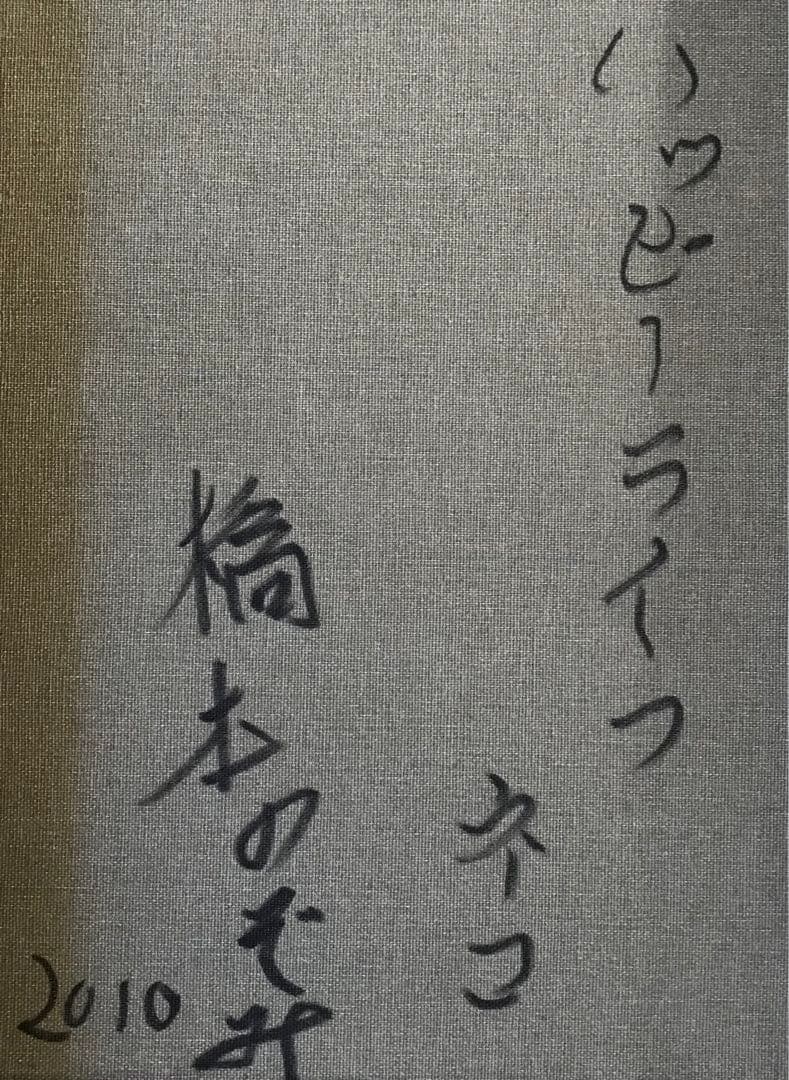 ハッピーライフ
ネコ
橋本のぞみ
2010